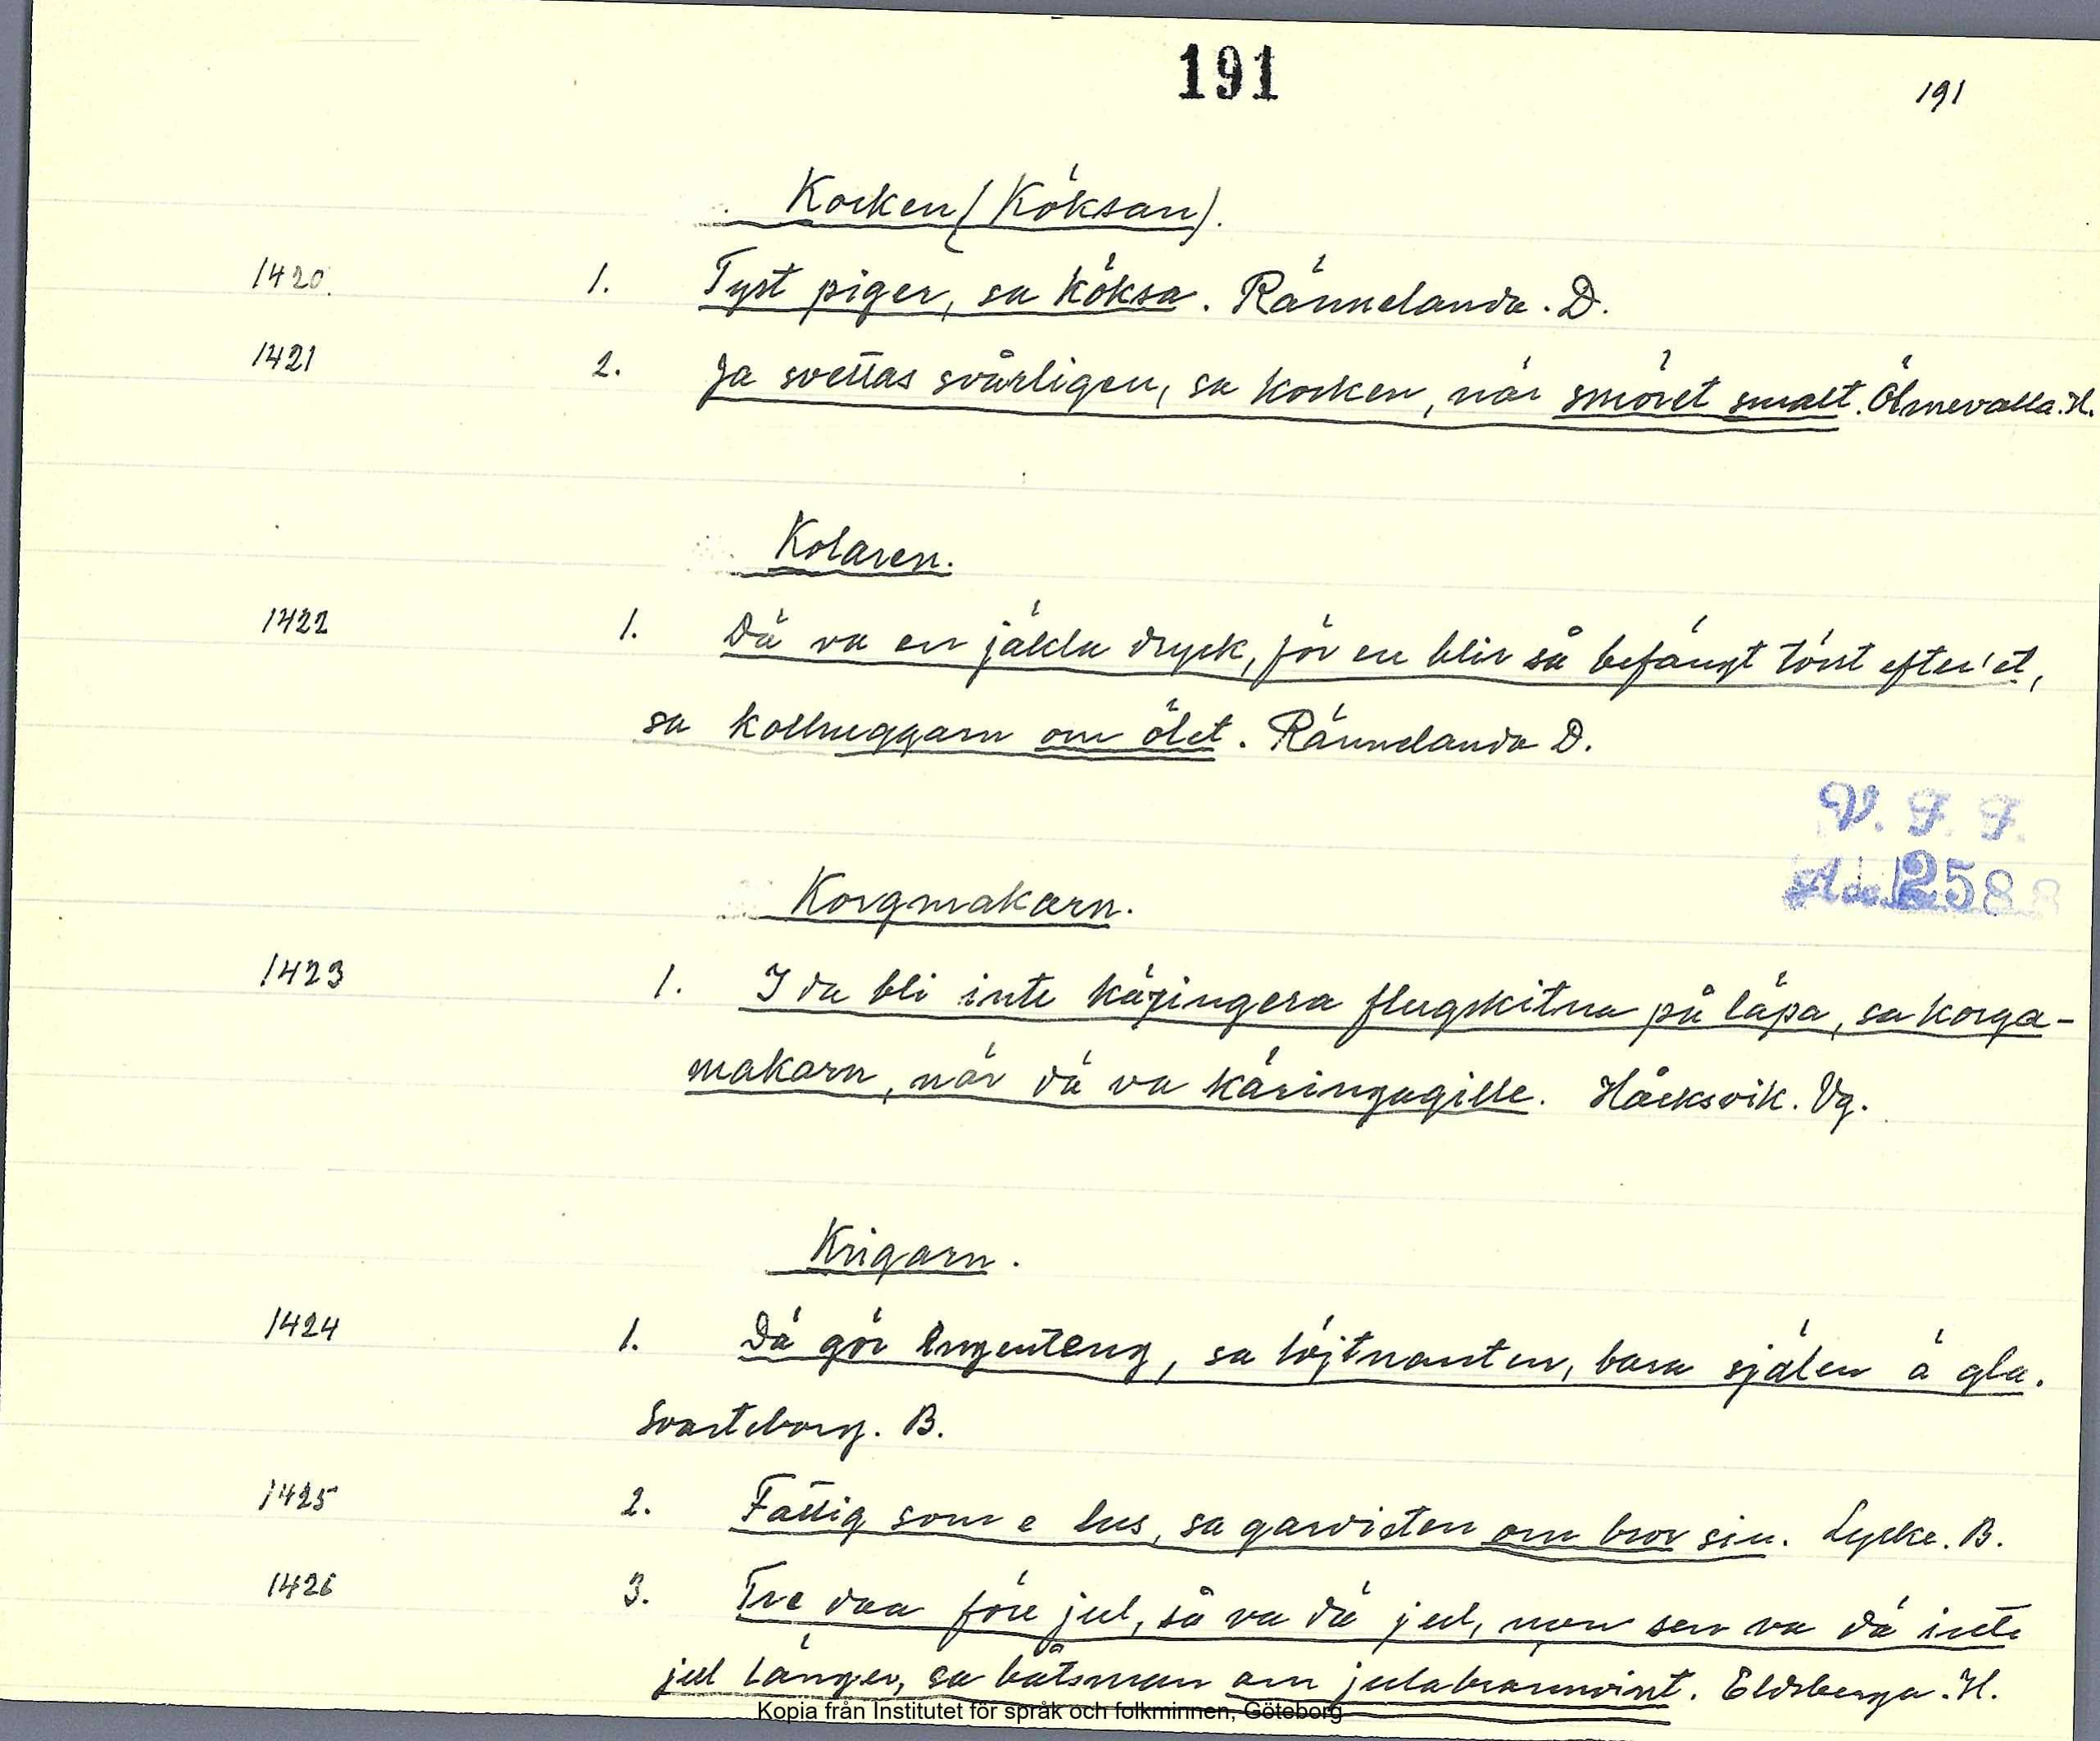 191
191
Kocken (Köksan).
1420. 1. Tyst piger, sa köksa. Rännelanda. D.
1421 2. Ja svettas svårligen, sa kocken, när smöret smalt. Ölmevalla. H.
Kolaren.
1422 1. Dä va en jäkla dryck, för en blir så befängt törst efter'et,
sa kolhuggarn om ölet. Rännelanda D.
V. F. F.
1258
Korgmakarn.
1423 1. I da bli inte käringera flugskitna på läpa, sa korga-
makarn, när dä va käringagille. Håcksvik. Vg.
Krigarn.
1424 1. Dä gör ingenteng, sa löjtnanten, bara själen ä gla.
Svarteborg. B.
1425 2. Fattig som e lus, sa gardisten om bror sin. Lycke. B.
1426 3. Tre daa före jul, så va dä jul, men sen va dä inte
jul länger, sa båtsman om julabrännvint. Eldsberga. H.
Kopia från Institutet för språk och folkminnen, Göteborg